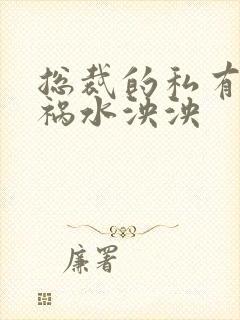 总裁的私有
祸水泱泱
廉署